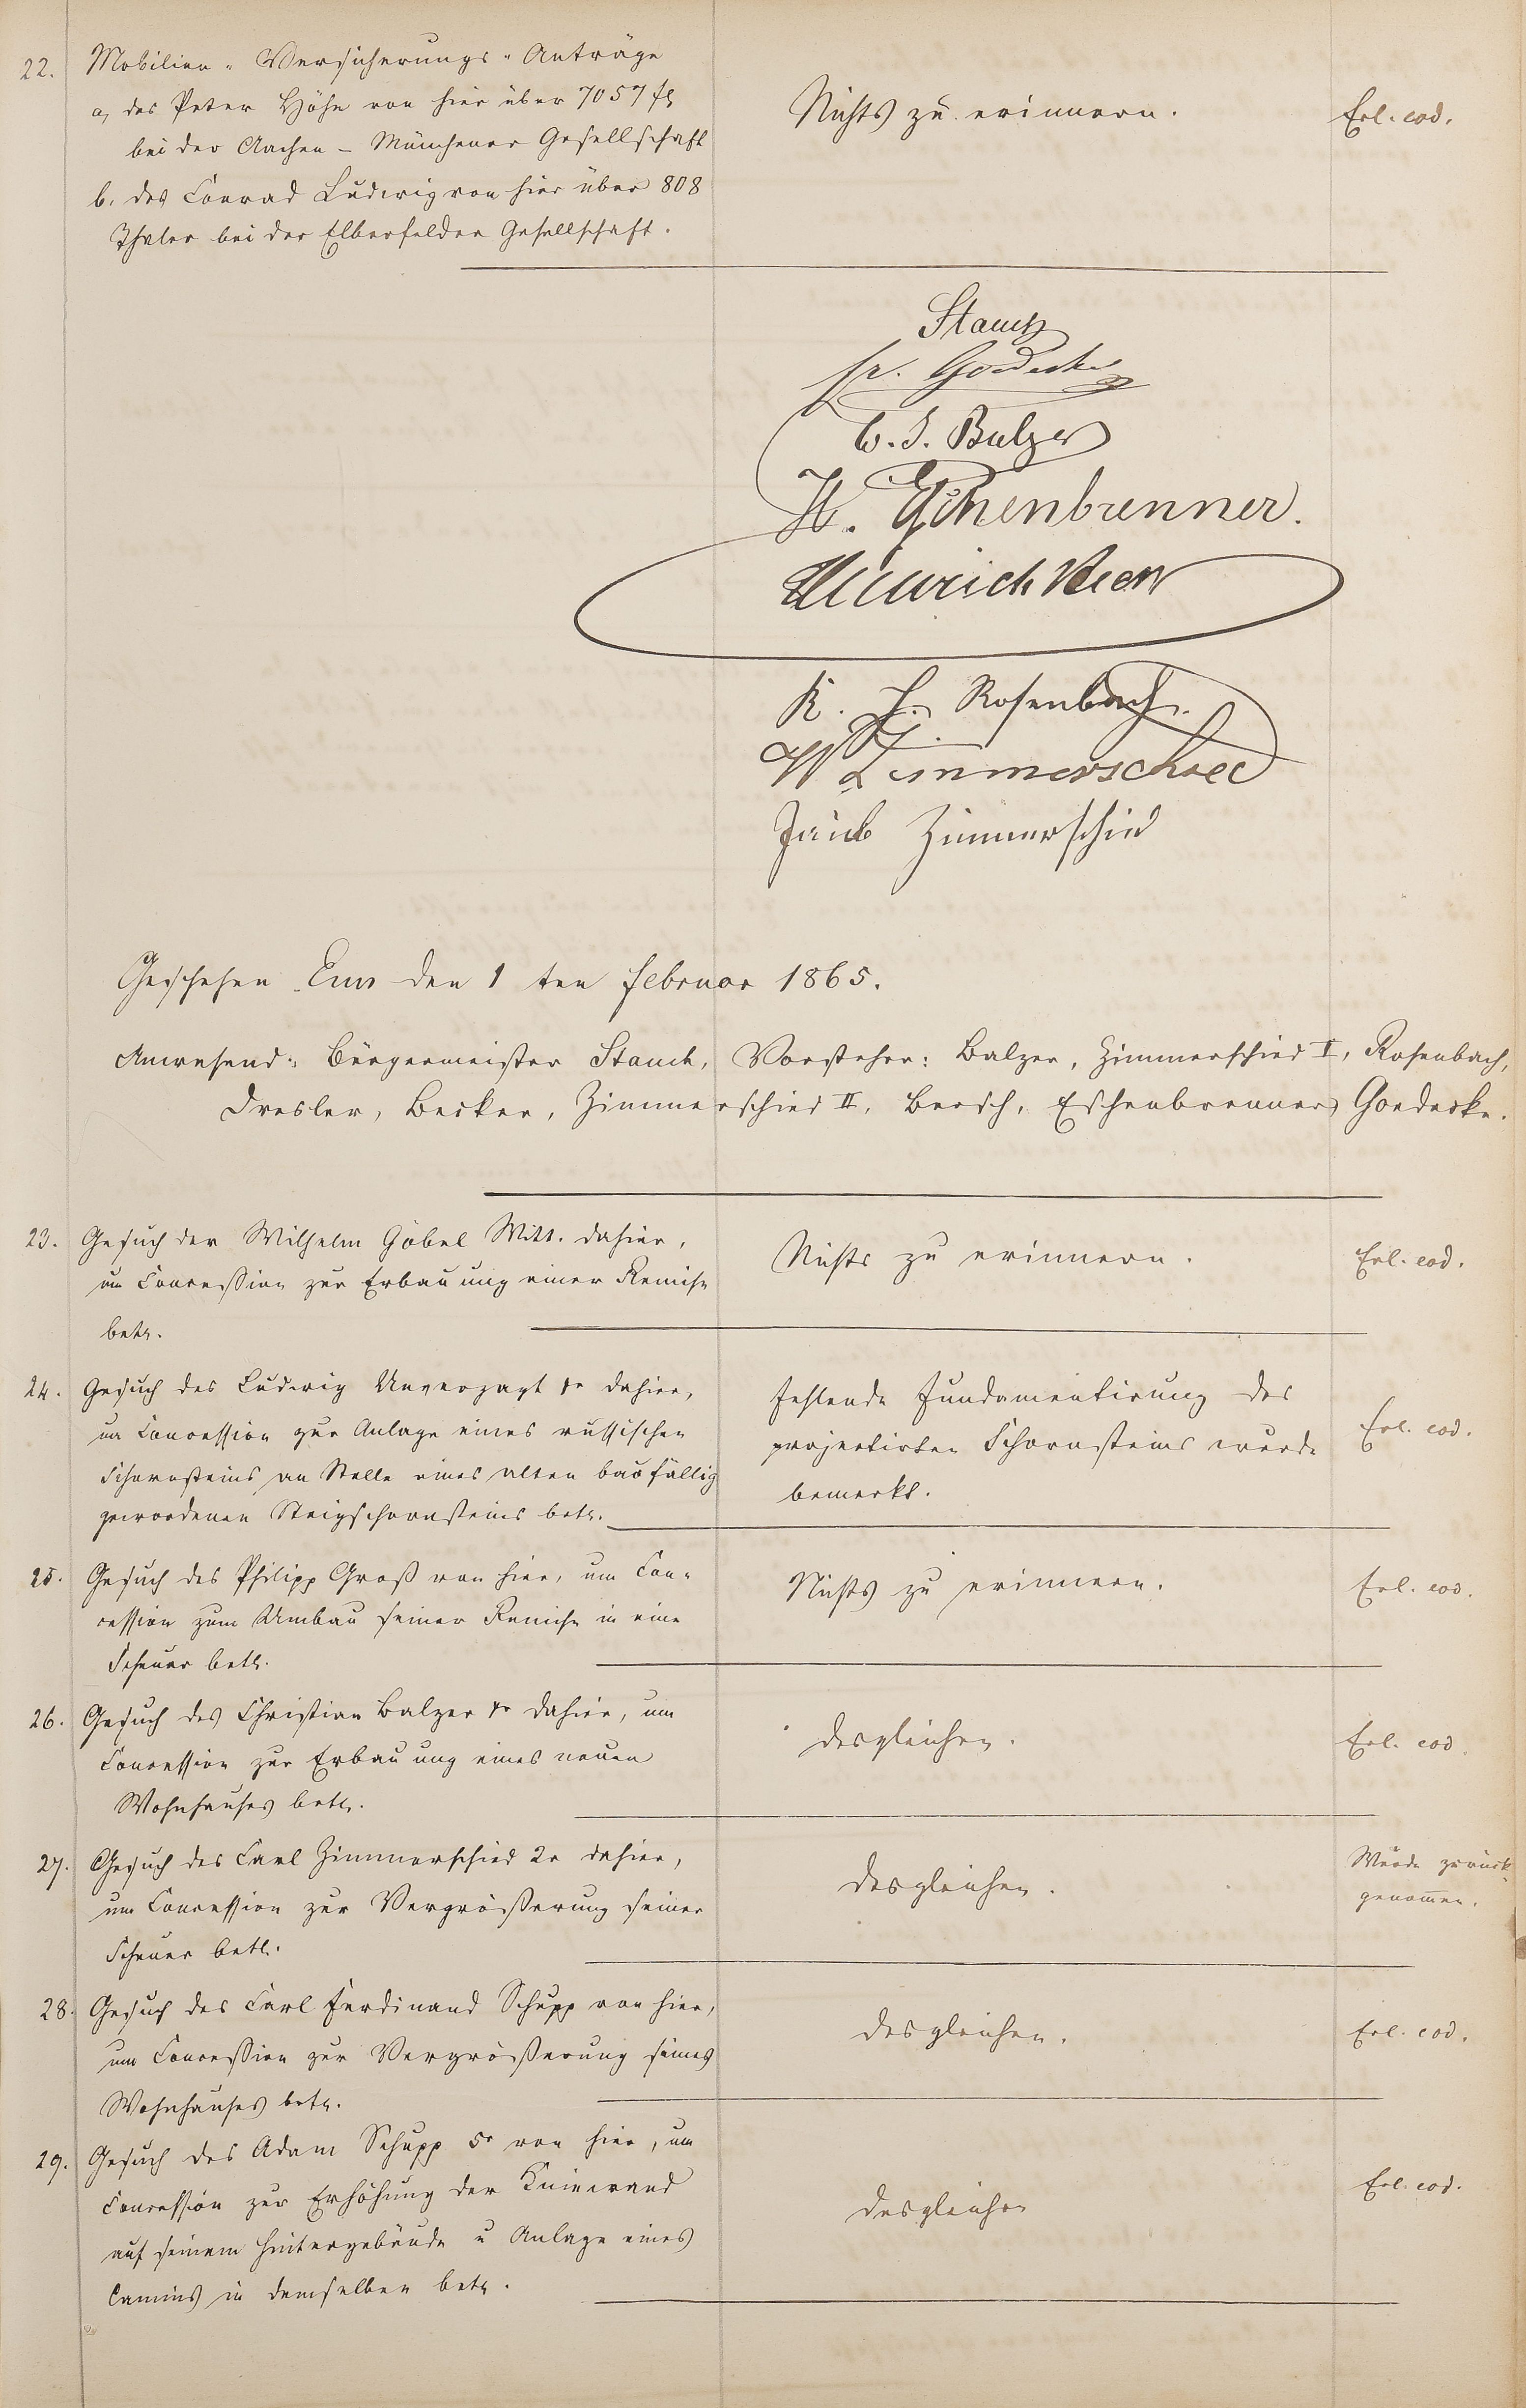 22. Mobilien-Versicherungs-Anträge
a, des Peter Höhn von hier über 7057 fl
bei der Aachen-Münchener Gesellschaft
b. des Conrad Ludwig von hier über 808
Thaler bei der Elberfelder Gesellschaft.
Nichts zu erinnern.
Erl. eod.
Stauch
Fr. Goedecke
C. J. Balzer
W. Eschenbrenner.
Heinrich
K. H. Rosenbach.
W Zimmerschied
Jacob Zimmerschied
Geschehen Ems den 1ten Februar 1865.
Anwesend: Bürgermeister Stauch, Vorsteher: Balzer, Zimmerschied I, Rosenbach,
Dresler, Becker, Zimmerschied II, Bersch, Eschenbrenner, Goedecke.
23. Gesuch der Wilhelm Göbel Witt. dahier,
um Concession zur Erbauung einer Remise
betr.
Nichts zu erinnern.
Erl. eod.
24. Gesuch des Ludwig Unverzagt dahier,
um Concession zur Anlage eines russischen
Schornsteins an Stelle eines alten baufällig
gewordenen Steigschornsteins betr.
Fehlende Fundamentirung des
projectirten Schornsteins wurde
bemerkt.
Erl. eod.
25. Gesuch des Philipp Groß von hier, um Con-
cession zum Umbau seiner Remise in eine
Scheuer betr.
Nichts zu erinnern.
Erl. eod.
26. Gesuch des Christian Balzer dahier, um
Concession zur Erbauung eines neuen
Wohnhauses betr.
desgleichen.
Erl. eod.
27. Gesuch des Carl Zimmerschied 2r dahier,
um Concession zur Vergrößerung seiner
Scheuer betr.
desgleichen.
Wurde zurück-
genom̄en.
28. Gesuch des Carl Ferdinand Schupp von hier,
um Concession zur Vergrößerung seines
Wohnhauses betr.
desgleichen.
Erl. eod.
29. Gesuch des Adam Schupp 5r von hier, um
Concession zur Erhöhung der Kniewand
auf seinem Hintergebäude u Anlage eines
Camins in demselben betr.
desgleichen
Erl. eod.